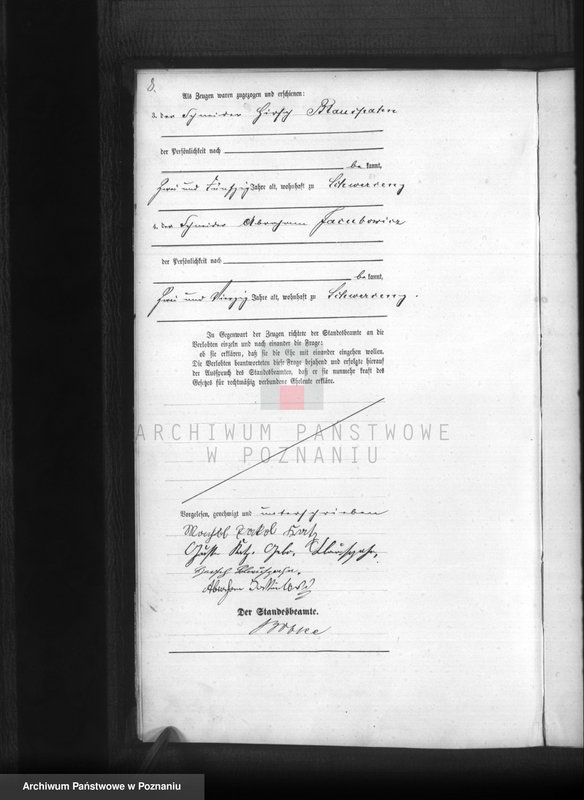 8.
Als Zeugen waren zugezogen und erschienen:
3. der Schneider Hirsch Blauspahn
der Persönlichkeit nach
be kannt,
zwei und fünfzig Jahre alt, wohnhaft zu Schwersenz
4. der Schneider Abraham Jacubowicz
der Persönlichkeit nach
be kannt,
zwei und vierzig Jahre alt, wohnhaft zu Schwersenz.
In Gegenwart der Zeugen richtete der Standesbeamte an die
Verlobten einzeln und nach einander die Frage:
ob sie erklären, daß sie die Ehe mit einander eingehen wollen.
Die Verlobten beantworteten diese Frage bejahend und erfolgte hierauf
der Ausspruch des Standesbeamten, daß er sie nunmehr kraft des
Gesetzes für rechtmäßig verbundene Eheleute erkläre.
ARCHIWUM PAŃSTWOWE
W POZNANIU
Vorgelesen, genehmigt und unterschrieben
Katz
Katz, Geb. Blauspahn,
Hirsch Blauspahn.
Abraham
Der Standesbeamte.
Archiwum Państwowe w Poznaniu